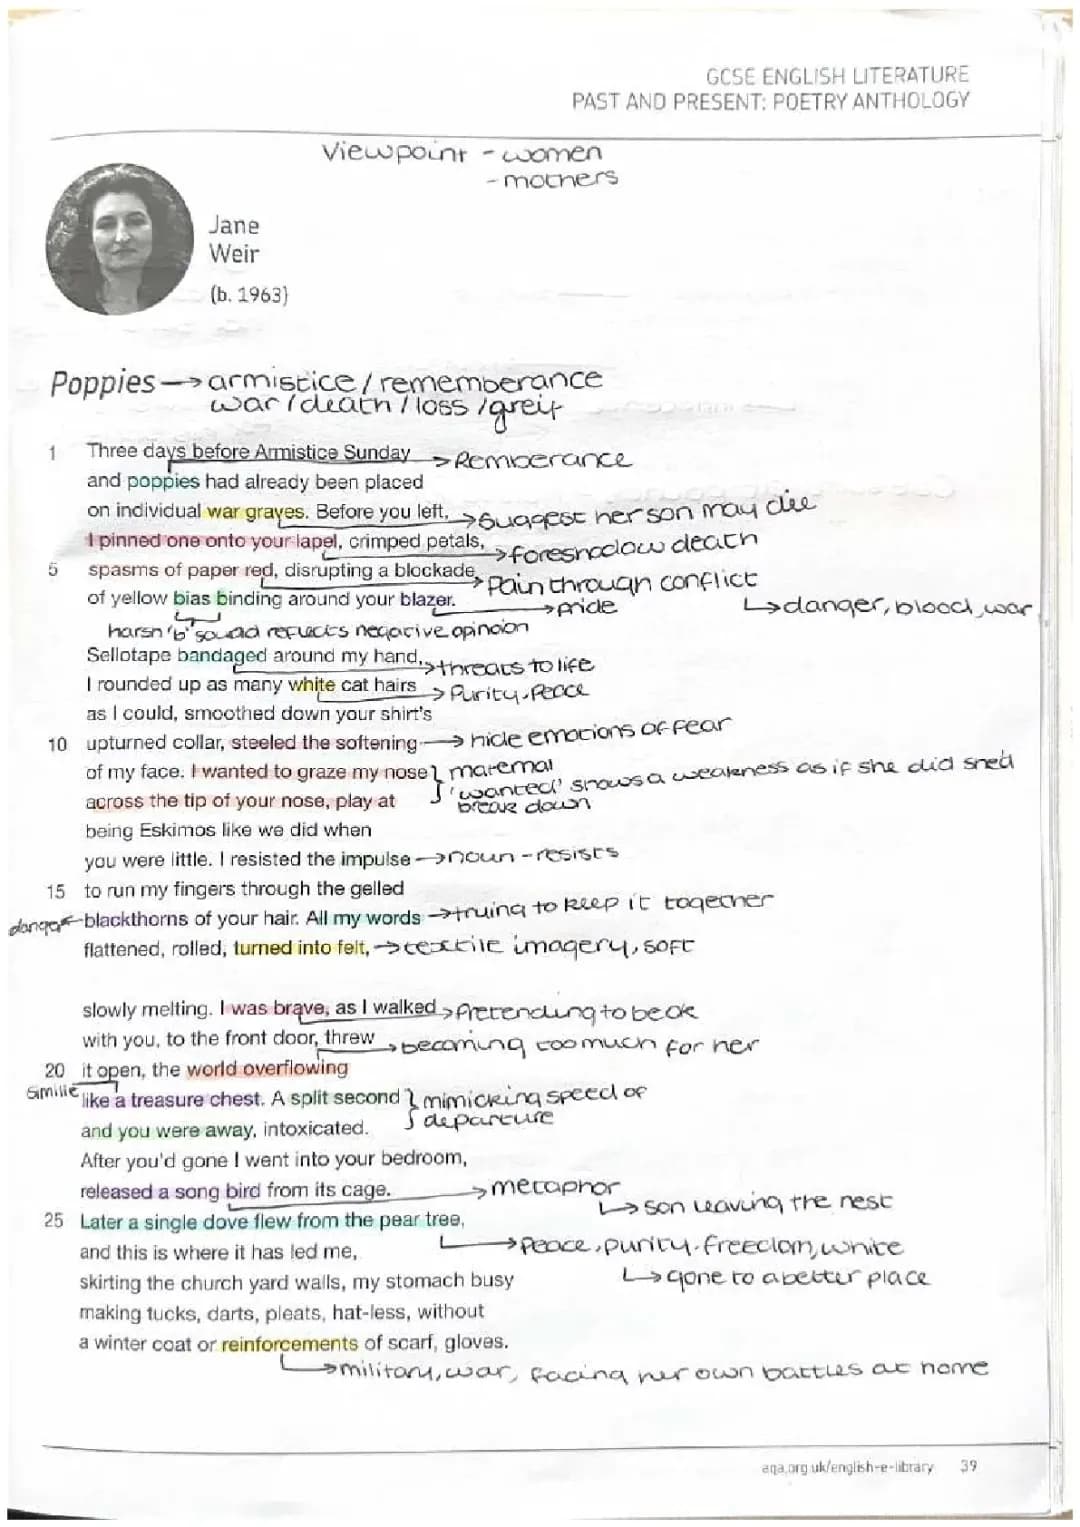 GCSE ENGLISH LITERATURE
PAST AND PRESENT: POETRY ANTHOLOGY
Viewpoint - women
- mothers
Jane
Weir
(b. 1963)
Poppies → armistice / rememberance
war / death / loss / greif
1 Three days before Armistice Sunday → Remberance
and poppies had already been placed
on individual war graves. Before you left, → Suggest her son may die
I pinned one onto your lapel, crimped petals, → foreshadow death
5 spasms of paper red, disrupting a blockade → Pain through conflict
of yellow bias binding around your blazer. → pride ↳ danger, blood, war
harsh 'b' sound reflects negative opinoion
Sellotape bandaged around my hand, → threats to life
I rounded up as many white cat hairs → Purity, Peace
as I could, smoothed down your shirt's
10 upturned collar, steeled the softening → hide emotions of fear
of my face. I wanted to graze my nose } maternal
'wanted' shows a weakness as if she did shed
across the tip of your nose, play at break down
being Eskimos like we did when
you were little. I resisted the impulse → noun - resists
15 to run my fingers through the gelled
danger ← blackthorns of your hair. All my words → truing to keep it together
flattened, rolled, turned into felt, → textile imagery, soft
slowly melting. I was brave, as I walked → Pretending to be ok
with you, to the front door, threw → becoming too much for her
20 it open, the world overflowing
Similie like a treasure chest. A split second } mimicking speed of
and you were away, intoxicated. departure
After you'd gone I went into your bedroom,
released a song bird from its cage. → metaphor
↳ son leaving the nest
25 Later a single dove flew from the pear tree,
and this is where it has led me, → Peace, purity, freedom, white
skirting the church yard walls, my stomach busy ↳ gone to a better place
making tucks, darts, pleats, hat-less, without
a winter coat or reinforcements of scarf, gloves.
↳ military, war, facing her own battles at home
aqa.org.uk/english-e-library 39